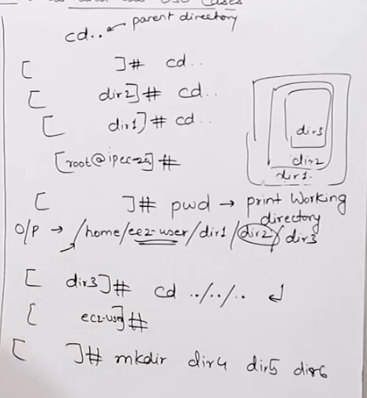 Use Cases
cd.. ← parent directory
[ ]# cd..
[ dir2]# cd..
[ dir1]# cd..
[root@ipec-25]#
dir3
dir2
dir1.
[ ]# pwd → print Working
directory
O/P → /home/ec2-user/dir1/dir2/dir3
[ dir3]# cd ../../..
[ ec2-user]#
[ ]# mkdir dir4 dir5 dir6